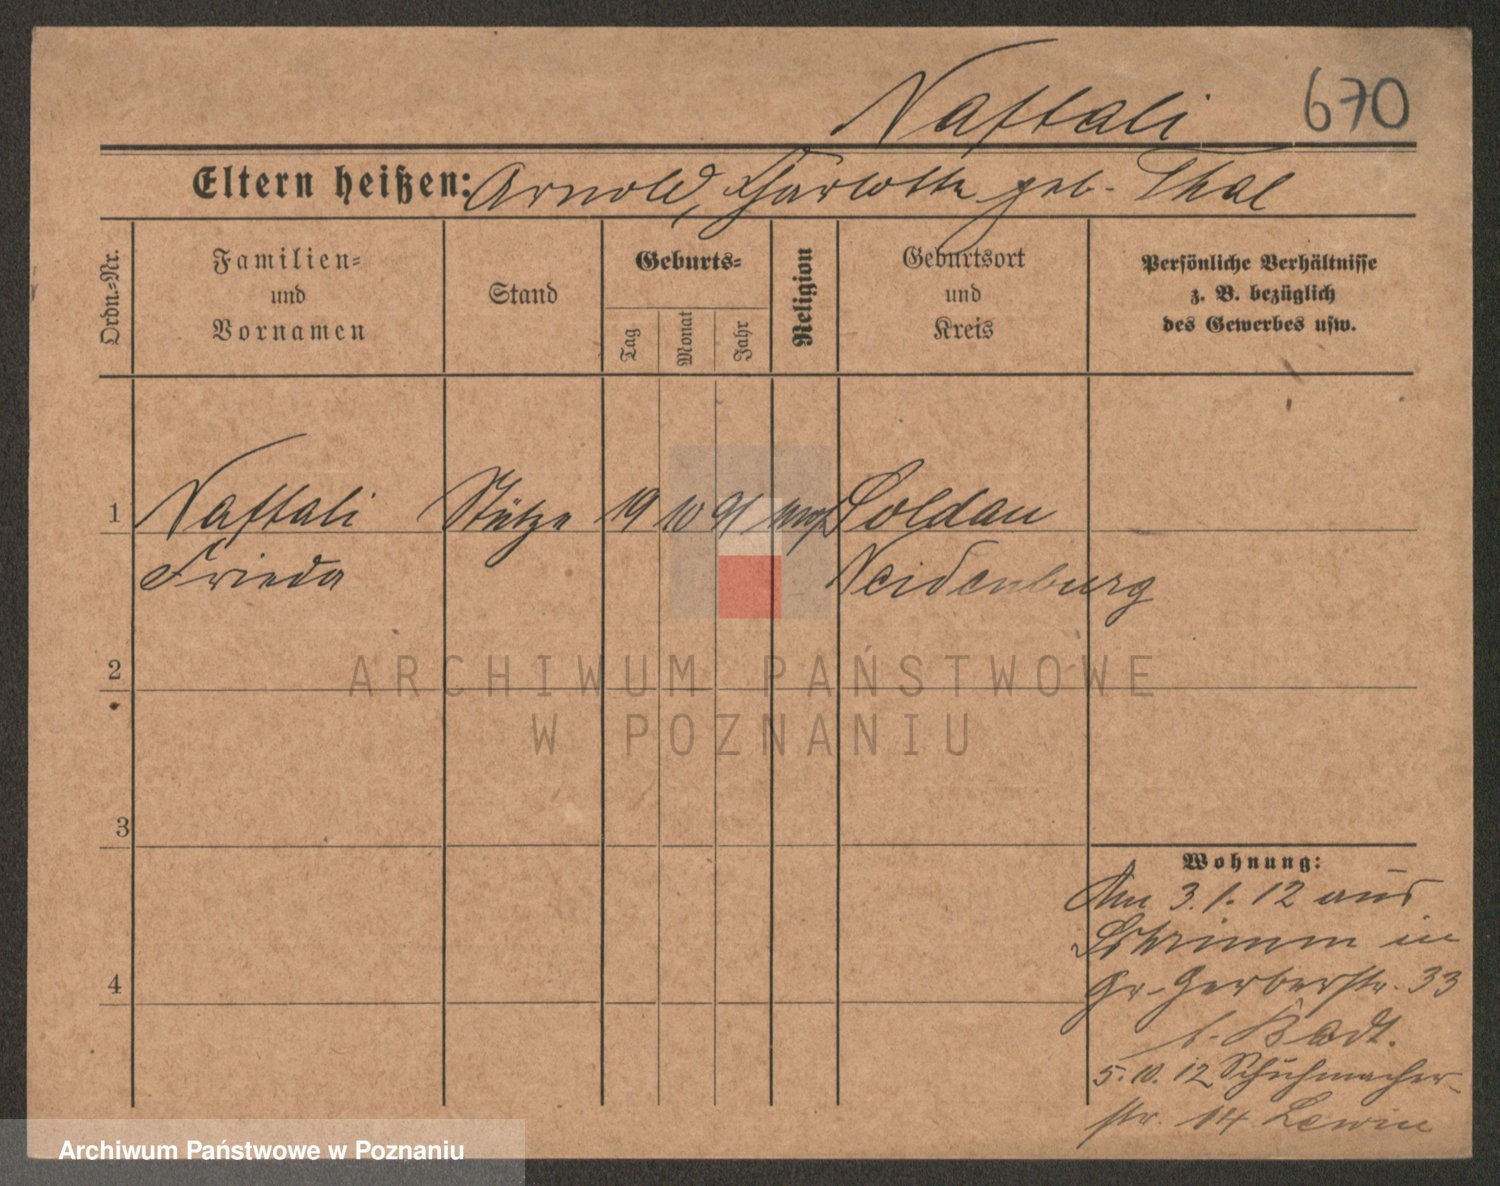 Naftali 670
Eltern heißen: Arnold, Charlotte geb. Thal
Ordn.-Nr.
Familien-
und
Vornamen
Stand
Geburts-
Tag
Monat
Jahr
Religion
Geburtsort
und
Kreis
Persönliche Verhältnisse
z. B. bezüglich
des Gewerbes usw.
1 Naftali Stütze 19 10 91 mos Soldau
Frieda Neidenburg
2
3
4
Wohnung:
Am 3.1.12 aus
Schrimm in
Gr. Gerberstr. 33
b. Badt.
5.10.12 Schuhmacher-
str. 14 Lewin
ARCHIWUM PAŃSTWOWE
W POZNANIU
Archiwum Państwowe w Poznaniu